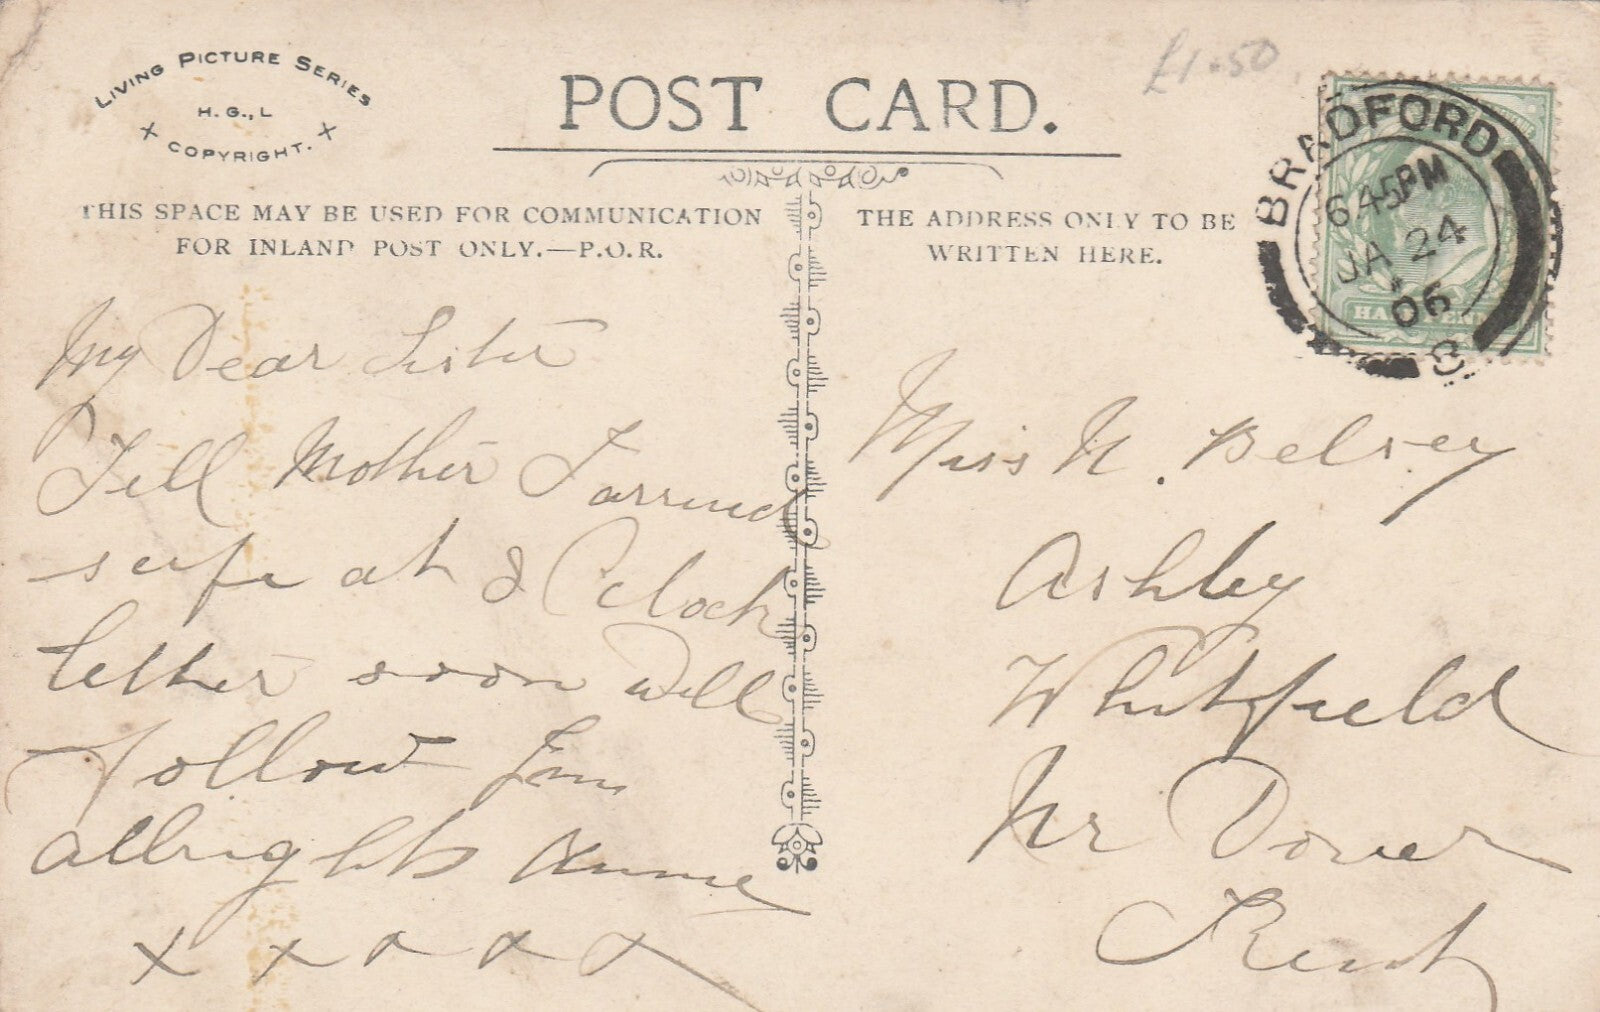 LIVING PICTURE SERIES
H. G., L
COPYRIGHT.
£1.50
POST CARD.
THIS SPACE MAY BE USED FOR COMMUNICATION
FOR INLAND POST ONLY.—P.O.R.
THE ADDRESS ONLY TO BE
WRITTEN HERE.
BRADFORD
6 45PM
JA 24
06
8
My Dear Sister
Tell Mother I arrived
safe at 8 Oclock
letter soon will
follow from
allright Annie
x x x x x
Miss N. Belsey
Ashley
Whitfield
Nr Dover
Kent